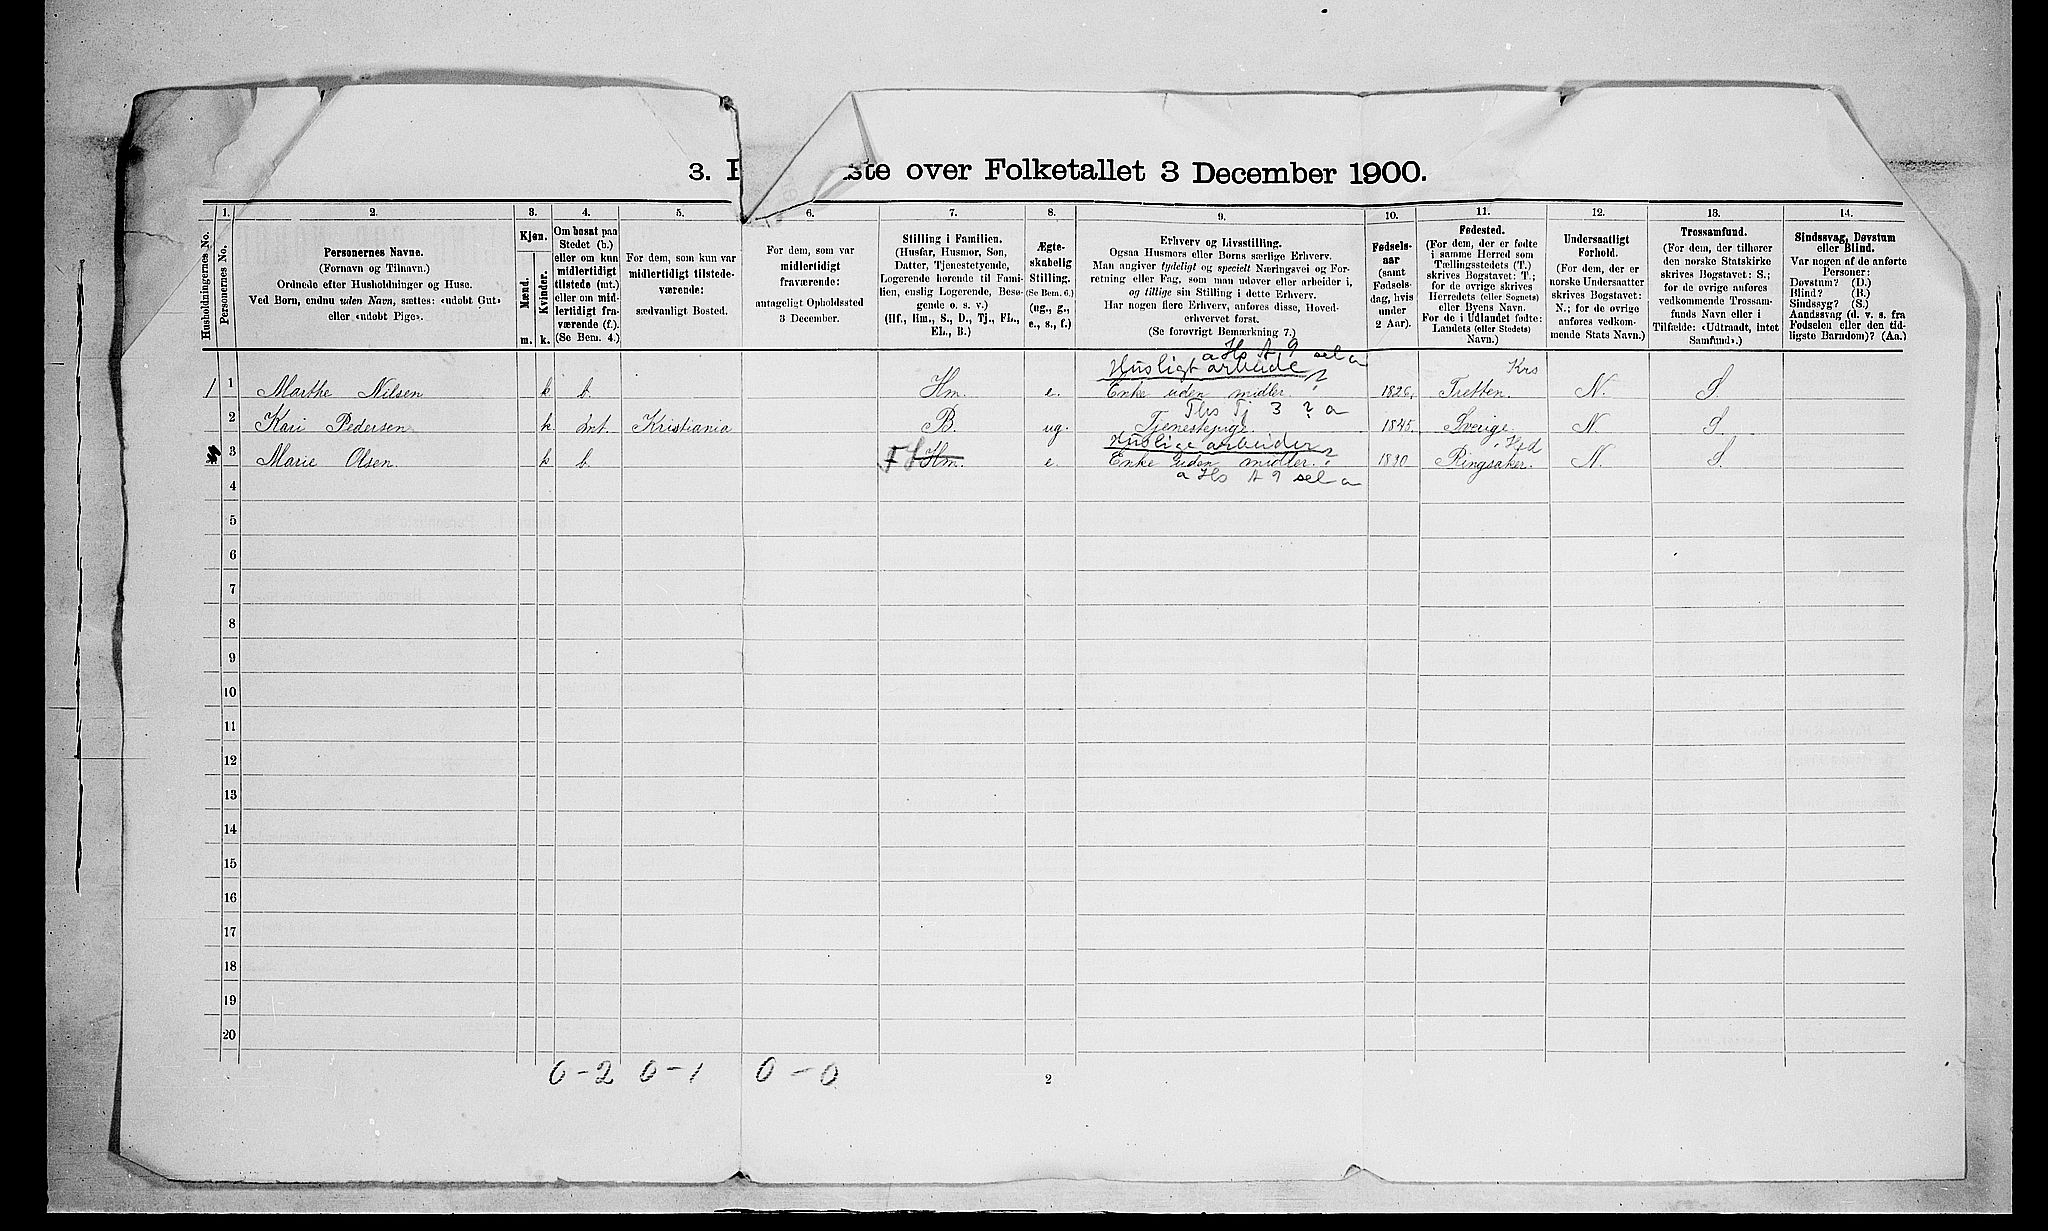 3. ste over Folketallet 3 December 1900.
1. 2. 3. 4. 5. 6. 7. 8. 9. 10. 11. 12. 13. 14.
Husholdningernes No.
Personernes No.
Personernes Navne.
(Fornavn og Tilnavn.)
Ordnede efter Husholdninger og Huse.
Ved Børn, endnu uden Navn, sættes: «udøbt Gut»
eller «udøbt Pige».
Kjøn.
Mænd.
Kvinder.
m. k.
Om bosat paa
Stedet (b.)
eller om kun
midlertidigt
tilstede (mt.)
eller om mid-
lertidigt fra-
værende (f.).
(Se Bem. 4.)
For dem, som kun var
midlertidigt tilstede-
værende:
sædvanligt Bosted.
For dem, som var
midlertidigt
fraværende:
antageligt Opholdssted
3 December.
Stilling i Familien.
(Husfar, Husmor, Søn,
Datter, Tjenestetyende,
Logerende hørende til Fami-
lien, enslig Logerende, Besø-
gende o. s. v.)
(Hf., Hm., S., D., Tj., FL.,
EL., B.)
Ægte-
skabelig
Stilling.
(Se Bem. 6.)
(ug., g.,
e., s., f.)
Erhverv og Livsstilling.
Ogsaa Husmors eller Børns særlige Erhverv.
Man angiver tydeligt og specielt Næringsvei og For-
retning eller Fag, som man udøver eller arbeider i,
og tillige sin Stilling i dette Erhverv.
Har nogen flere Erhverv, anføres disse, Hoved-
erhvervet først.
(Se forøvrigt Bemærkning 7.)
Fødsels-
aar
(samt
Fødsels-
dag, hvis
under
2 Aar).
Fødested.
(For dem, der er fødte
i samme Herred som
Tællingsstedets (T.)
skrives Bogstavet: T.;
for de øvrige skrives
Herredets (eller Sognets)
eller Byens Navn.
For de i Udlandet fødte:
Landets (eller Stedets)
Navn.)
Undersaatligt
Forhold.
(For dem, der er
norske Undersaatter
skrives Bogstavet:
N.; for de øvrige
anføres vedkom-
mende Stats Navn.)
Trossamfund.
(For dem, der tilhører
den norske Statskirke
skrives Bogstavet: S.;
for de øvrige anføres
vedkommende Trossam-
funds Navn eller i
Tilfælde: «Udtraadt, intet
Samfund».)
Sindssvag, Døvstum
eller Blind.
Var nogen af de anførte
Personer:
Døvstum? (D.)
Blind? (B.)
Sindssyg? (S.)
Aandssvag (d. v. s. fra
Fødselen eller den tid-
ligste Barndom)? (Aa.)
a Hs A 9 sel a
Husligt arbeide Krs
1 1 Marthe Nilsen k b. Hm. e. Enke uden midler. ? 1826, Tretten. N. S.
Ths Tj 3 ? a
2 Kari Pedersen k mt. Kristiania B. ug. Tjenestepige. 1845. Sverige. N. S.
Huslige arbeider Hed
3 Marie Olsen. k b. Hm. e. Enke uden midler. ? 1830 Ringsaker. N. S.
a Hs A 9 sel a
4
5
6
7
8
9
10
11
12
13
14
15
16
17
18
19
20
0 - 2 0 - 1 0 - 0
2